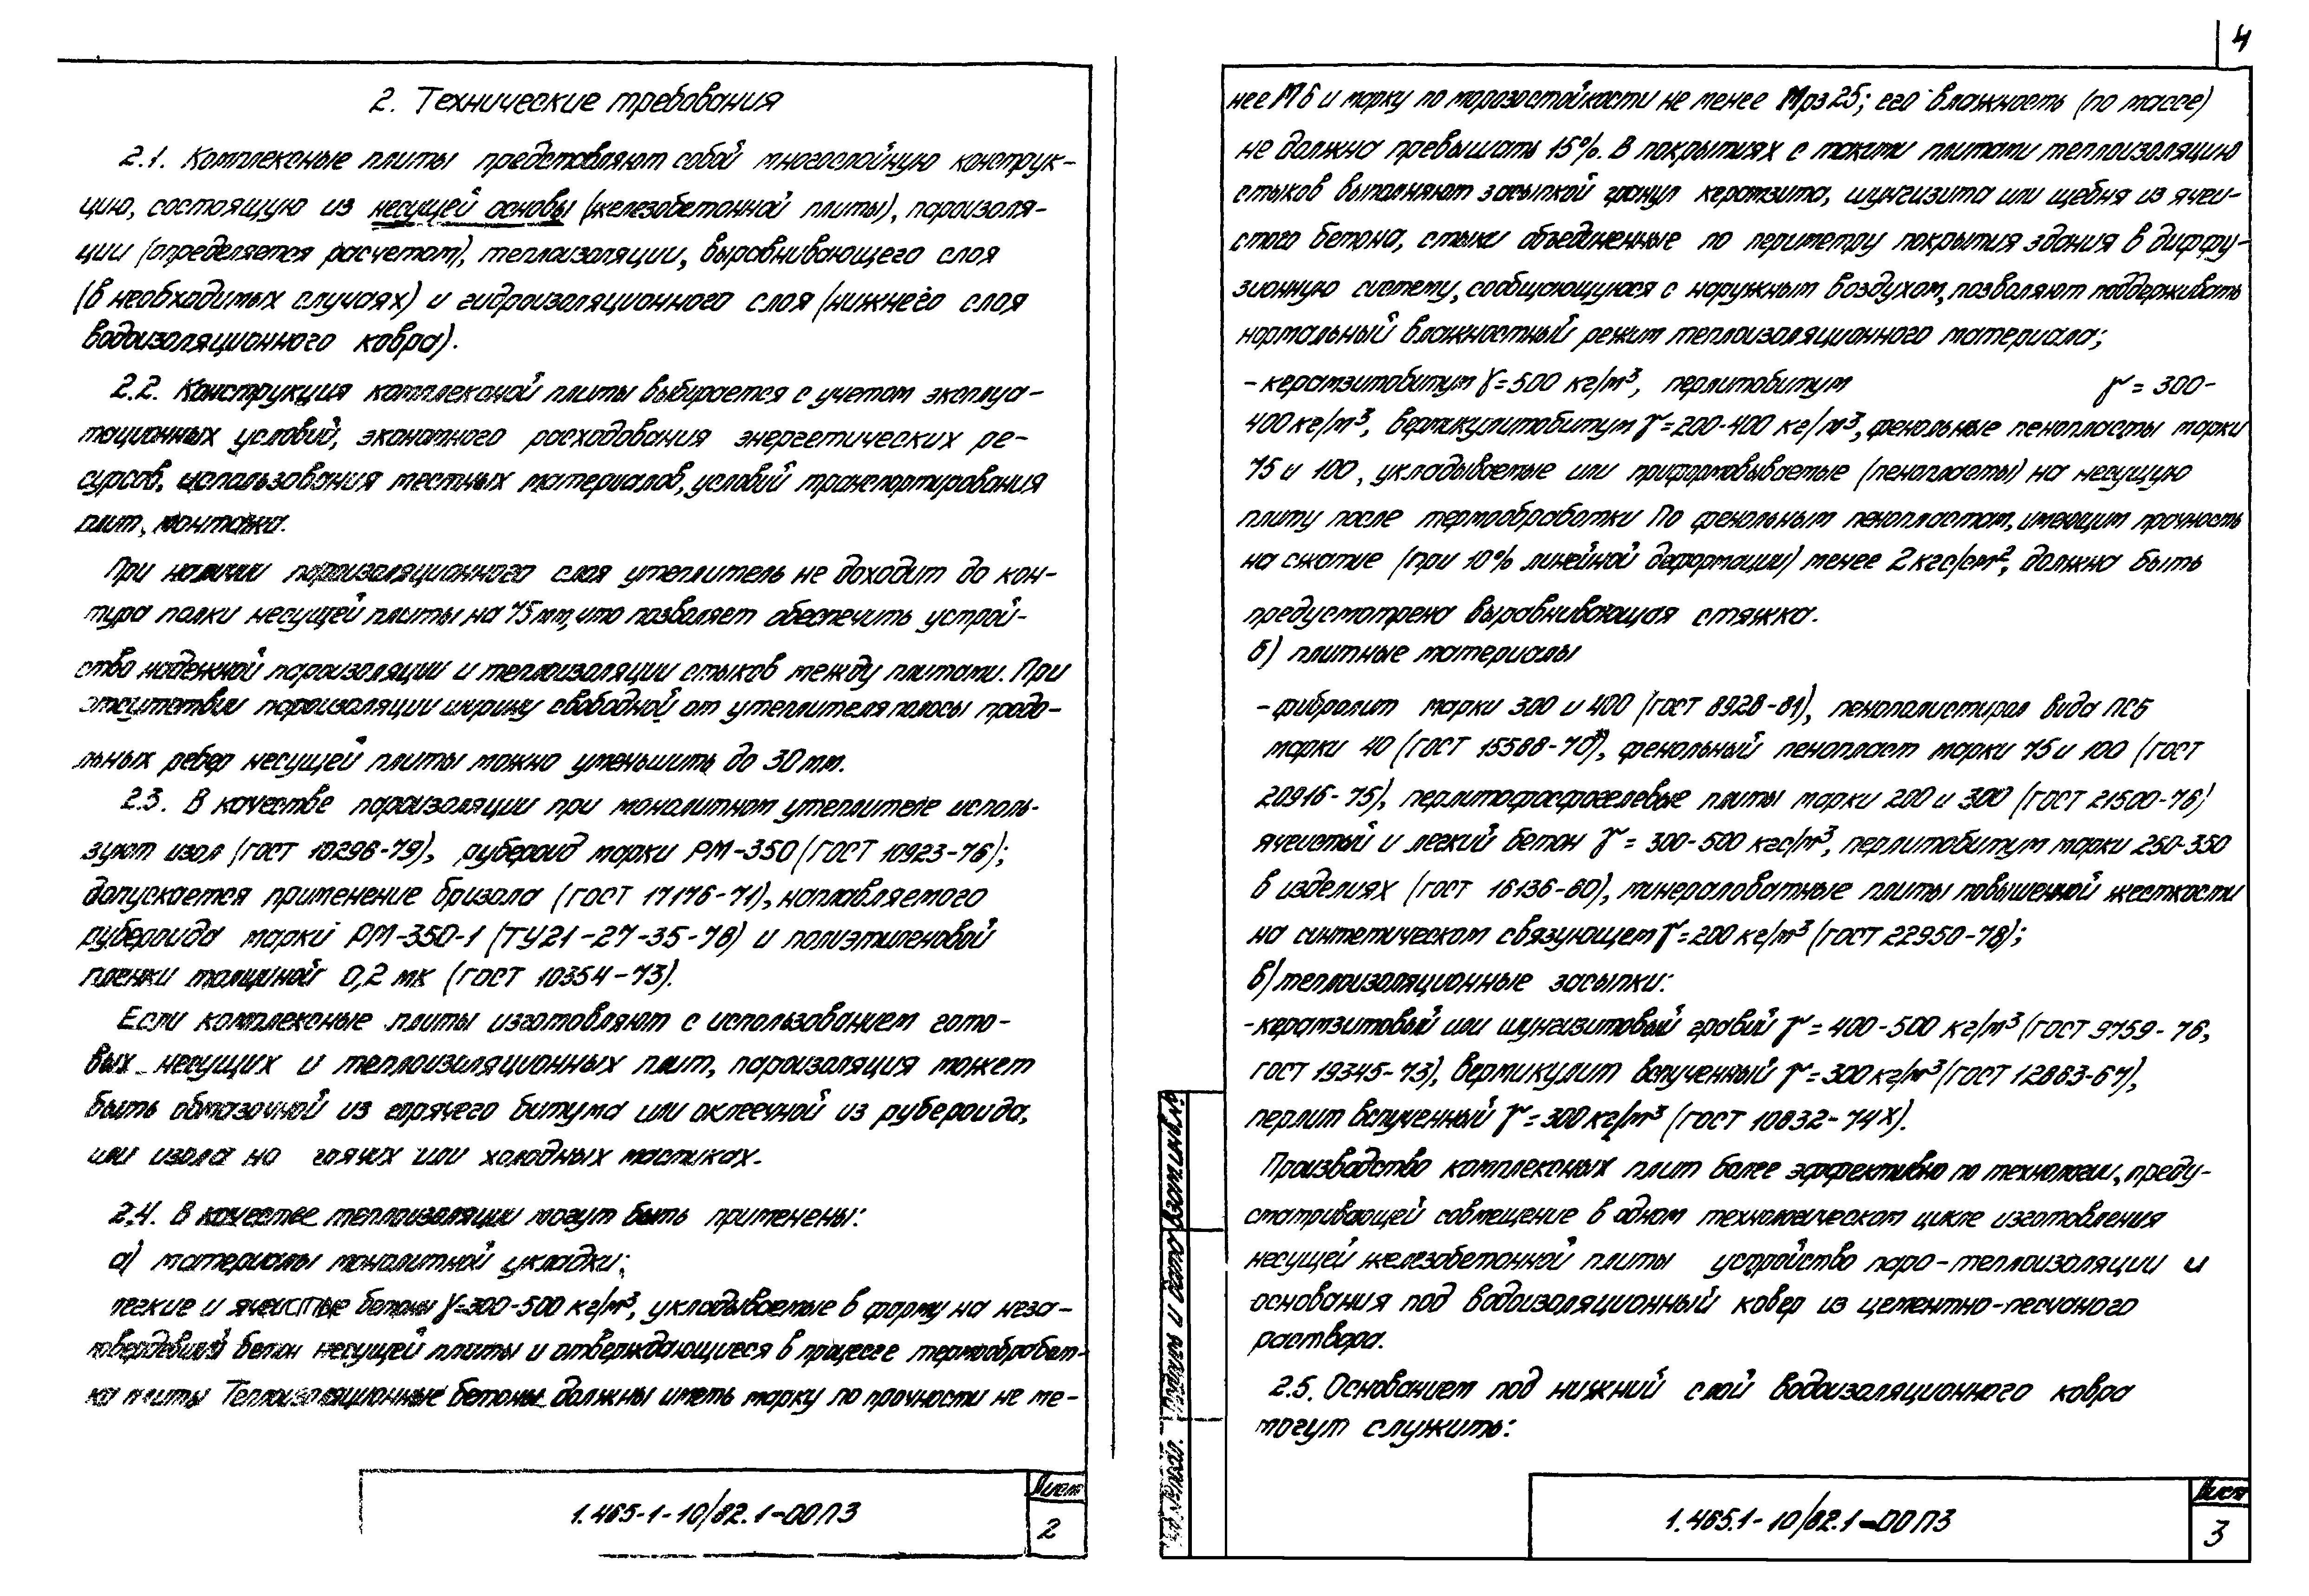 2. Технические требования
2.1. Комплексные плиты представляют собой многослойную конструк-
цию, состоящую из несущей основы (железобетонной плиты), пароизоля-
ции (определяется расчетом), теплоизоляции, выравнивающего слоя
(в необходимых случаях) и гидроизоляционного слоя (нижнего слоя
водоизоляционного ковра).
2.2. Конструкция комплексной плиты выбирается с учетом эксплуа-
тационных условий, экономного расходования энергетических ре-
сурсов, использования местных материалов, условий транспортирования
плит, монтажа.
При наличии пароизоляционного слоя утеплитель не доходит до кон-
тура полки несущей плиты на 75 мм, что позволяет обеспечить устрой-
ство надежной пароизоляции и теплоизоляции стыков между плитами. При
отсутствии пароизоляции ширину свободной от утеплителя полосы продо-
льных ребер несущей плиты можно уменьшить до 30 мм.
2.3. В качестве пароизоляции при монолитном утеплителе исполь-
зуют изол (ГОСТ 10296-79), рубероид марки РМ-350 (ГОСТ 10923-76);
допускается применение бризола (ГОСТ 17176-71), наплавляемого
рубероида марки РМ-350-1 (ТУ21-27-35-78) и полиэтиленовой
пленки толщиной 0,2 мк (ГОСТ 10354-73).
Если комплексные плиты изготовляют с использованием гото-
вых несущих и теплоизоляционных плит, пароизоляция может
быть обмазочной из горячего битума или оклеечной из рубероида,
или изола на горячих или холодных мастиках.
2.4. В качестве теплоизоляции могут быть применены:
а) материалы монолитной укладки;
легкие и ячеистые бетоны γ=300-500 кг/м³, укладываемые в форму на неза-
твердевший бетон несущей плиты и отверждающиеся в процессе термообработ-
ки плиты Теплоизоляционные бетоны должны иметь марку по прочности не ме-
1.465-1-10/82.1-00ПЗ
Лист
2
4
нее М6 и марку по морозостойкости не менее Мрз25; его влажность (по массе)
не должна превышать 15%. В покрытиях с такими плитами теплоизоляцию
стыков выполняют засыпкой гранул керамзита, шунгизита или щебня из ячеи-
стого бетона, стыки объединенные по периметру покрытия здания в диффу-
зионную систему, сообщающуюся с наружным воздухом, позволяют поддерживать
нормальный влажностный режим теплоизоляционного материала;
-керамзитобитум γ=500 кг/м³, перлитобитум γ = 300-
400 кг/м³, вермикулитобитум γ=200-400 кг/м³, фенольные пенопласты марки
75 и 100, укладываемые или приформовываемые (пенопласты) на несущую
плиту после термообработки По фенольным пенопластам, имеющим прочность
на сжатие (при 10% линейной деформации) менее 2 кгс/см², должна быть
предусмотрена выравнивающая стяжка.
б) плитные материалы
-фибролит марки 300 и 400 (ГОСТ 8928-81), пенополистирол вида ПСБ
марки 40 (ГОСТ 15588-70*), фенольный пенопласт марки 75 и 100 (ГОСТ
20916-75), перлитофосфогелевые плиты марки 200 и 300 (ГОСТ 21500-76)
ячеистый и легкий бетон γ = 300-500 кгс/м³, перлитобитум марки 250-350
в изделиях (ГОСТ 16136-80), минераловатные плиты повышенной жесткости
на синтетическом связующем γ=200 кг/м³ (ГОСТ 22950-78);
в) теплоизоляционные засыпки:
-керамзитовый или шунгизитовый гравий γ = 400-500 кг/м³ (ГОСТ 9759-76,
ГОСТ 19345-73), вермикулит вспученный γ=300 кг/м³ (ГОСТ 12863-67),
перлит вспученный γ=300 кг/м³ (ГОСТ 10832-74Х).
Производство комплексных плит более эффективно по технологии, преду-
сматривающей совмещение в одном технологическом цикле изготовления
несущей железобетонной плиты устройство паро-теплоизоляции и
основания под водоизоляционный ковер из цементно-песчаного
раствора.
2.5. Основанием под нижний слой водоизоляционного ковра
могут служить:
Взам.инв.№
Подпись и дата
1.465.1-10/82.1-00ПЗ
Лист
3